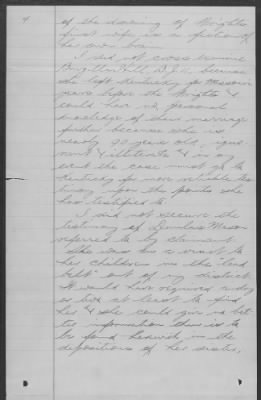 4
of the drowning of Wright's
first wife, is a fiction of
her own brain.
I did not cross examine
Hill, D.J.A., because
she left Kentucky for Missouri
years before the Wrights &
could have no personal
knowledge of their marriage
further because she is
nearly 90 years old, igno-
rant & illiterate & in any
event the case must go to
Kentucky for more reliable tes-
timony upon the points she
has testified to.
I did not secure the
testimony of Mason
referred to by claimant.
She was on a visit to
her children in the "lead
belt" out of my district.
It would have required a day
or two at least to find
her & she could give no bet-
ter information than is to
be found herewith in the
depositions of her sister,